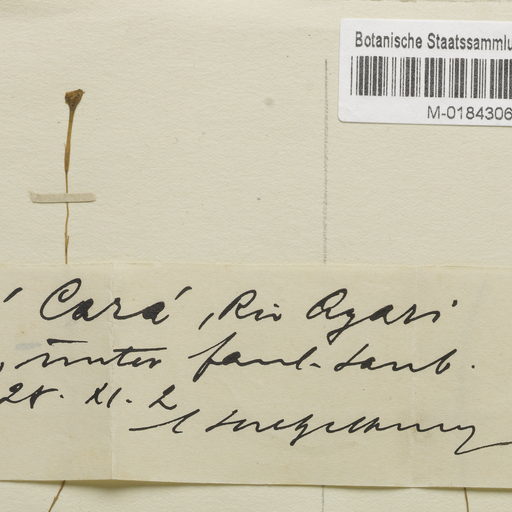 Botanische Staatssammlu
M-0184306
Cará, Rio Agari
, unter faul. Laub.
28. XI. 2